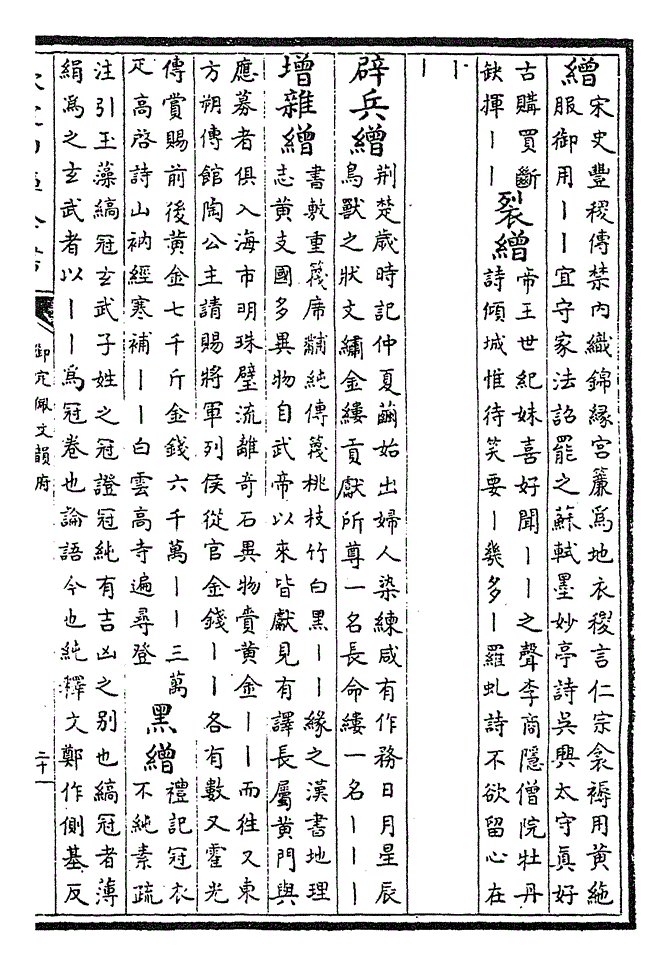 繒
宋史豐稷傳禁内織錦緣宮簾為地衣稷言仁宗衾褥用黄絁
服御用丨丨宜守家法詔罷之蘇軾墨妙亭詩吳興太守真好
古購買斷
缺揮丨丨
裂繒
帝王世紀妹喜好聞丨丨之聲李商隱僧院牡丹
詩傾城惟待笑要丨幾多丨羅虬詩不欲留心在
丨
丨
辟兵繒
荆楚歲時記仲夏繭始出婦人染練咸有作務日月星辰
鳥獸之狀文繡金縷貢獻所尊一名長命縷一名丨丨丨
增雜繒
書敷重篾席黼純傳篾桃枝竹白黑丨丨緣之漢書地理
志黄支國多異物自武帝以來皆獻見有譯長屬黄門與
應募者俱入海市明珠璧流離奇石異物賫黄金丨丨而往又東
方朔傳館陶公主請賜將軍列侯從官金錢丨丨各有數又霍光
傳賞賜前後黄金七千斤金錢六千萬丨丨三萬
疋高啓詩山衲經寒補丨丨白雲高寺遍尋登
黑繒
禮記冠衣
不純素疏
注引玉藻縞冠玄武子姓之冠證冠純有吉凶之别也縞冠者薄
絹為之玄武者以丨丨為冠卷也論語今也純釋文鄭作側基反
御定佩文韻府
二十一